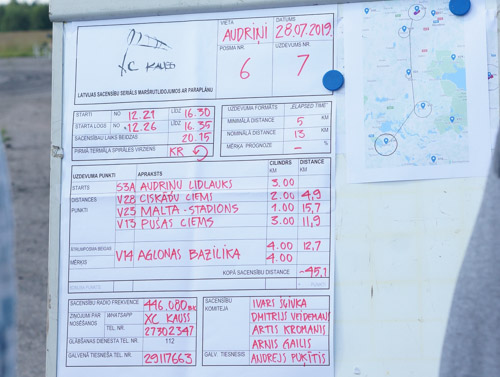 VIETA DATUMS
AUDRIŅI 28.07.2019.
POSMA NR. UZDEVUMS NR.
6 7
XC KAUSS
LATVIJAS SACENSĪBU SERIĀLS MARŠRUTLIDOJUMOS AR PARAPLĀNU
STARTI NO 12.21 LĪDZ 16.30
STARTA LOGS NO 12.26 LĪDZ 16.35
SACENSĪBU LAIKS BEIDZAS 20.15
PIRMĀ TERMĀĻA SPIRĀLES VIRZIENS KR
UZDEVUMA FORMĀTS ELAPSED TIME
MINIMĀLĀ DISTANCE 5 KM
NOMINĀLĀ DISTANCE 13 KM
MĒRĶA PROGNOZE — %
UZDEVUMA PUNKTI APRAKSTS CILINDRS DISTANCE
KM KM
STARTS S3A AUDRIŅU LIDLAUKS 3.00
DISTANCES V28 CISKĀDU CIEMS 2.00 4,9
PUNKTI V23 MALTA - STADIONS 1.00 15,7
V13 PUŠAS CIEMS 3.00 11,9
4.00 12,7
MĒRĶIS V14 AGLONAS BAZILIKA 4.00
KOPĀ SACENSĪBU DISTANCE ~45,1
SACENSĪBU RADIO FREKVENCE 446,080
ZIŅOJUMI PAR NOSĒŠANOS WHATSAPP XC KAUSS
TEL. NR. 27302347
GLĀBŠANAS DIENESTA TEL. NR. 112
GALVENĀ TIESNEŠA TEL. NR. 29117663
SACENSĪBU KOMITEJA IVARS SLIVKA
DMITRIJS VEIDEMANS
ARTIS KROMANIS
ARNIS GAILIS
GALV. TIESNESIS ANDREJS PUKĪTIS